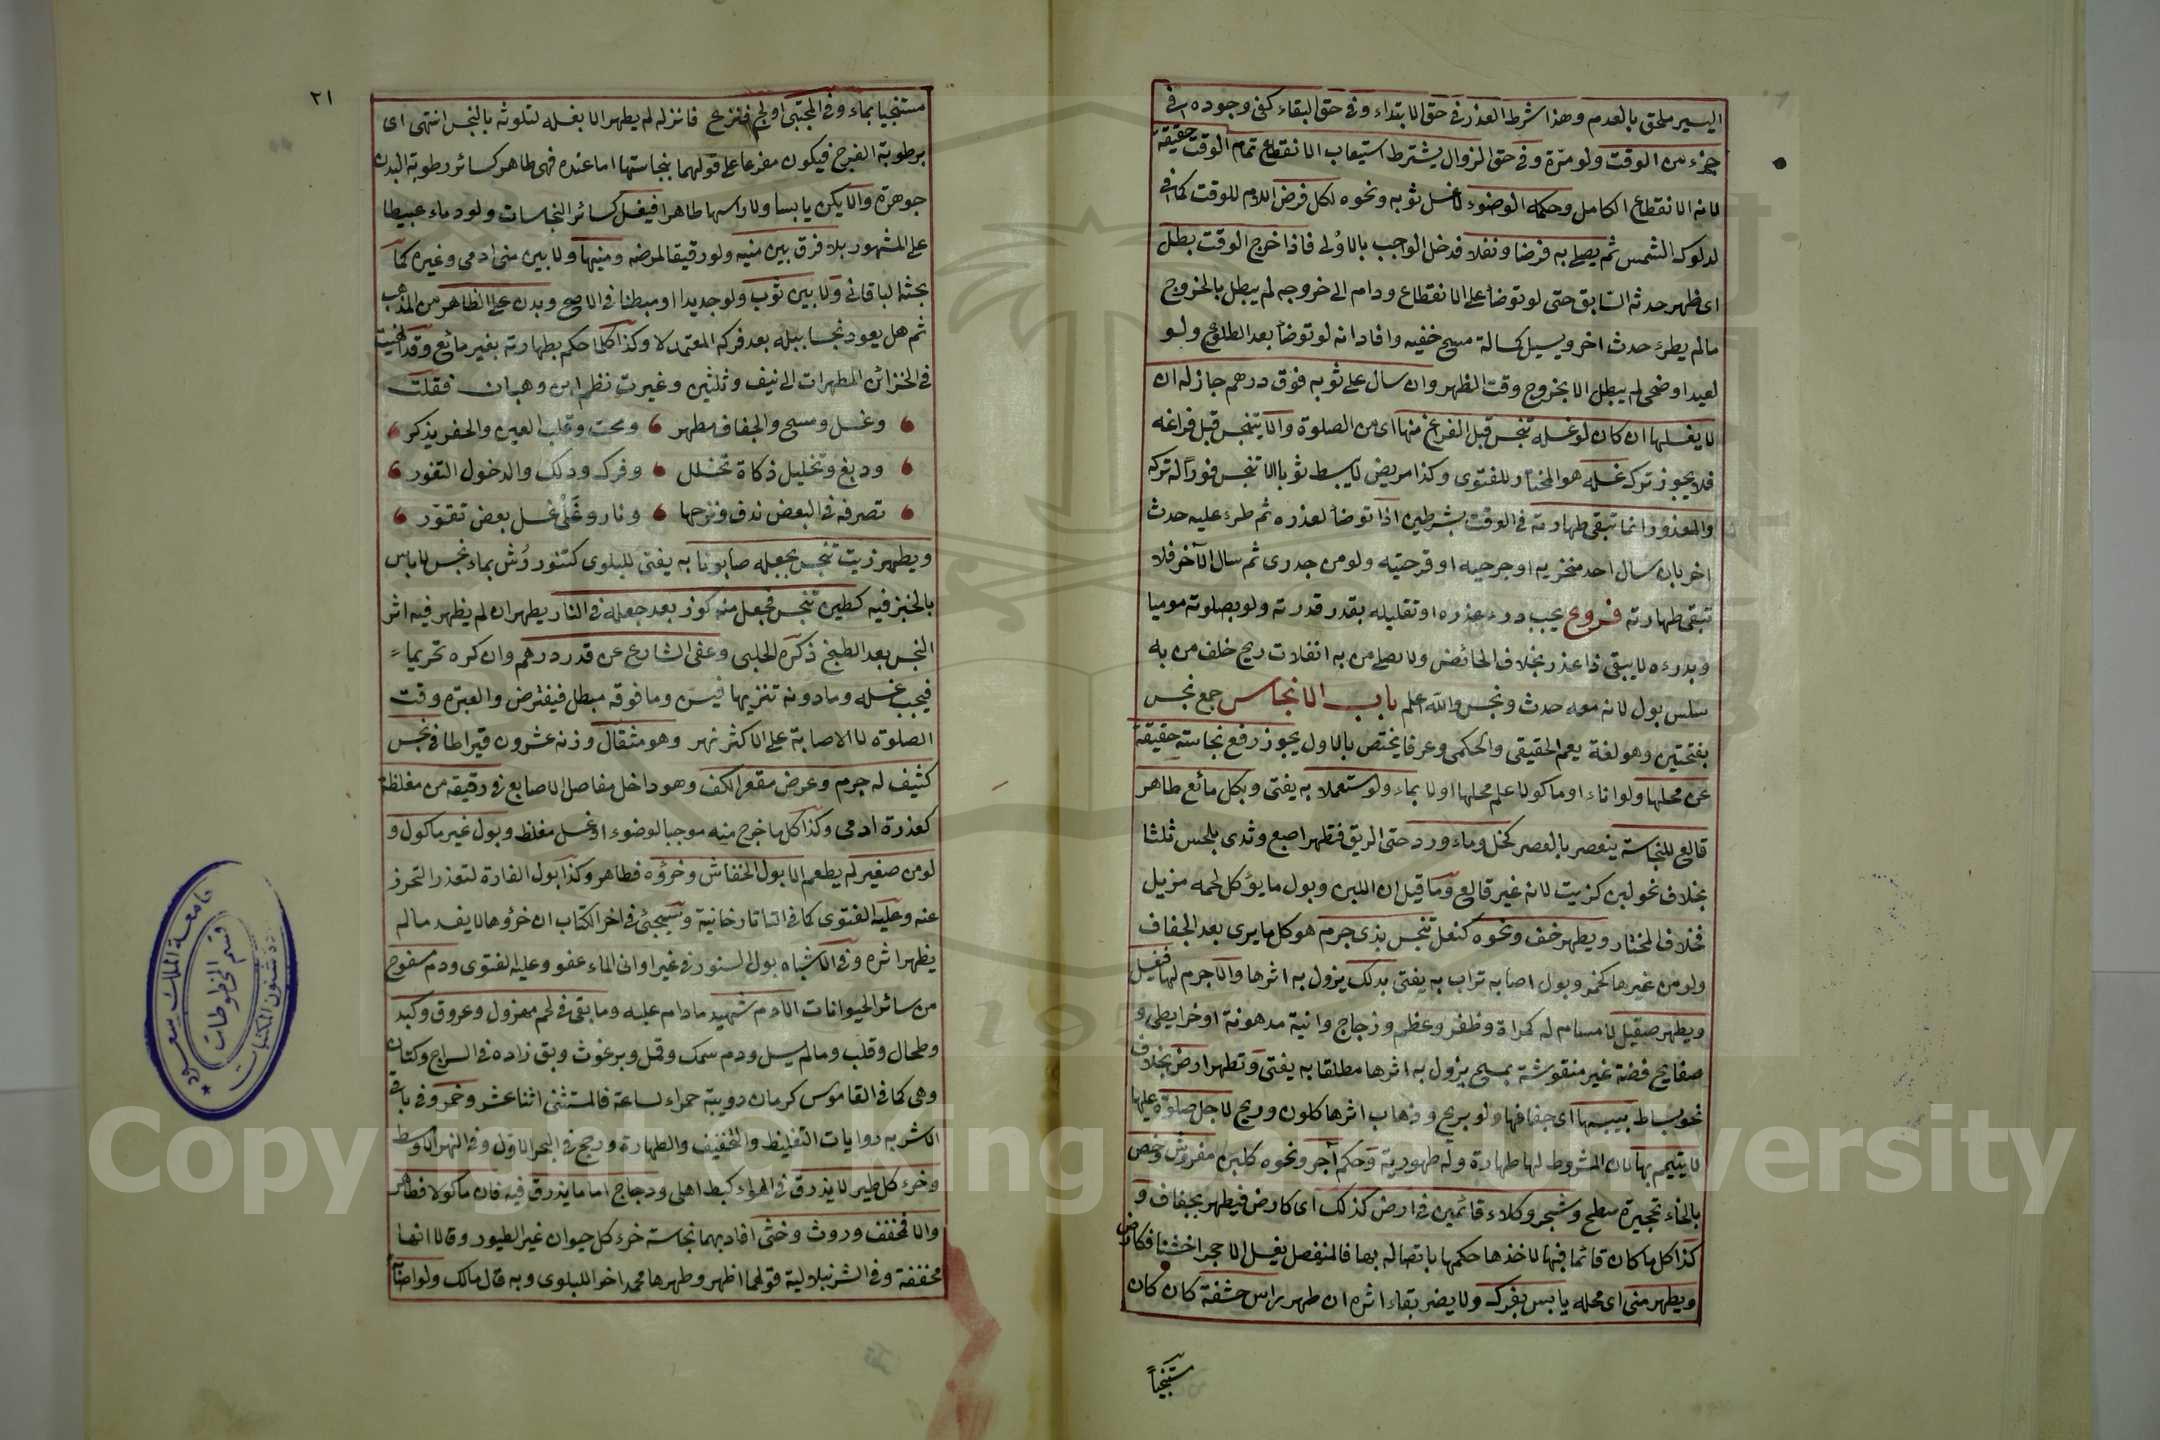 اليسير ملحق بالعدم وهذا شرط العذر في حق الابتداء وفي حق البقاء كفى وجوده في
جزء من الوقت ولو مرة وفي حق الزوال يشترط استيعاب الانقطاع تمام الوقت حقيقة
لانه الانقطاع الكامل وحكمه الوضوء لا غسل ثوبه ونحوه لكل فرض اللام للوقت كما في
لدلوك الشمس ثم يصلي به فرضا ونفلا فدخل الواجب بالاولى فاذا خرج الوقت بطل
اى ظهر حدثه السابق حتى لو توضأ على الانقطاع ودام الى خروجه لم يبطل بالخروج
مالم يطرء حدث اخر ويسيل كمسالة مسح خفيه وافاد انه لو توضأ بعد الطلوع ولو
لعيد او ضحى لم يبطل الا بخروج وقت الظهر وان سال على ثوبه فوق درهم جاز له ان
لا يغسلها ان كان لو غسله تنجس قبل الفراغ منها اى من الصلوة والا يتنجس قبل فراغه
فلا يجوز ترك غسله هو المختار للفتوى وكذا مريض لا يبسط ثوبا الا تنجس فورا له تركه
والمعذور انما تبقى طهارته في الوقت بشرطين اذا توضأ لعذره ثم طرء عليه حدث
اخر بان سال احد منخريه او جرحيه او قرحتيه ولو من جدرى ثم سال الآخر فلا
تبقى طهارته فروع يجب درء عذره او تقليله بقدر قدرته ولو بصلوته موميا
وبدرءه لا يبقى ذا عذر بخلاف الحائض ولا يصلي من به انفلات ريح خلف من به
سلس بول لانه معه حدث ونجس والله اعلم باب الانجاس جمع نجس
بفتحتين وهو لغة يعم الحقيقي والحكمي وعرفا يختص بالاول يجوز رفع نجاسة حقيقة
عن محلها ولو اناء او ماكولا علم محلها او لا بماء ولو مستعملا به يفتى وبكل مائع طاهر
قالع للنجاسة ينعصر بالعصر كخل وماء ورد حتى الريق فتطهر اصبع وثدى بلحس ثلثا
بخلاف نحو لبن كزيت لانه غير قالع وما قيل ان اللبن وبول ما يؤكل لحمه مزيل
فخلاف المختار ويطهر خف ونحوه كنعل تنجس بذى جرم هو كل ما يرى بعد الجفاف
ولو من غيرها كخمر وبول اصابه تراب به يفتى بدلك يزول به اثرها والا جرم لها فيغسل
ويطهر صقيل لا مسام له كمراة وظفر وعظم وزجاج وانية مدهونة او خرايطى و
صفايح فضة غير منقوشة بمسح يزول به اثرها مطلقا به يفتى وتطهر ارض بخلاف
نحو بساط بيبسها اى جفافها ولو بريح وذهاب اثرها كلون وريح لاجل صلوة عليها
لا يتيمم بها لان المشروط لها طهارة وله طهورية وحكم آجر ونحوه كلبن مفروش وخص
بالخاء تحجيرة سطح وشجر وكلاء قائمين في ارض كذلك اى كارض فيطهر بجفاف و
كذا كل ما كان قائما فيها لاخذها حكمها باتصاله بها فالمنفصل يغسل الا حجرا خشنا فكارض
ويطهر منى اى محله يابس بفرك ولا يضر بقاء اثره ان طهر راس حشفة كان كان
مستنجياً
٢١
مستنجيا بماء وفي المجتبى اولج فنزع فانزله لم يطهر الا بغسله لتلوثه بالنجس انتهى اى
برطوبة الفرج فيكون مفرعا على قولهما بنجاستها اما عنده فهى طاهر كسائر رطوبة البدن
جوهرة والا يكن يابسا ولا راسها طاهرا فيغسل كسائر النجاسات ولو دماء عبيطا
على المشهور بلا فرق بين منيه ولو رقيقا لمرضه ومنيها ولا بين منى ادمى وغيره كما
بحثه الباقانى ولا بين ثوب ولو جديدا او مبطنا في الاصح وبدن على الظاهر من المذهب
ثم هل يعود نجسا ببله بعد فركه المعتمد لا وكذا كلما حكم بطهارته بغير مائع وقد انهيت
في الخزائن المطهرات الى نيف وثلثين وغيرت نظم ابن وهبان فقلت
وغسل ومسح والجفاف مطهر ونحت وقلب العين والحفر يذكر
ودبغ وتخليل ذكاة تخلل وفرك ودلك والدخول التغور
تصرفه في البعض ندف ونزحها ونار وغلى غسل بعض تقور
ويطهر زيت تنجس بجعله صابونا به يفتى للبلوى كتنور رُش بماء نجس لا باس
بالخبز فيه كطين تنجس فجعل منه كوز بعد جعله في النار يطهر ان لم يظهر فيه اثر
النجس بعد الطبخ ذكره الحلبى وعفى الشارع عن قدر درهم وان كره تحريما
فيجب غسله وما دونه تنزيها فيسن وما فوقه مبطل فيفترض والعبرة وقت
الصلوة لا الاصابة على الاكثر نهر وهو مثقال وزنه عشرون قيراطا في نجس
كثيف له جرم وعرض مقعر الكف وهو داخل مفاصل الاصابع في رقيقه من مغلظة
كعذرة ادمى وكذا كل ما خرج منه موجبا لوضوء او غسل مغلظ وبول غير ماكول و
لو من صغير لم يطعم الا بول الخفاش وخرؤه فطاهر وكذا بول الفارة لتعذر التحرز
عنه وعليه الفتوى كما في التاتارخانية وسيجئ في اخر الكتاب ان خرؤها لا يفسد مالم
يظهر اثره وفي الاشباه بول السنور في غير اوانى الماء عفو وعليه لفتوى ودم مسفوح
من سائر الحيوانات الا دم شهيد ما دام عليه وما بقى في لحم مهزول وعروق وكبد
وطحال وقلب ومالم يسل ودم سمك وقمل وبرغوث وبق زاده في السراج وكتان
وهى كما في القاموس كرمان دويبة حمراء لساعة فالمستثنى اثنا عشر وخمر وفي باقى
الاشربه روايات التغليظ والتخفيف والطهارة ورجح في البحر الاول وفي النهر الاوسط
وخرء كل طير لا يذرق في الهواء كبط اهلى ودجاج اما ما يذرق فيه فان ماكولا فطاهر
والا فمخفف وروث وخثى افاد بهما نجاسة خرء كل حيوان غير الطيور وقالا انها
مخففة وفي الشرنبلالية قولهما اظهر وطهرها محمد اخرا للبلوى وبه قال مالك ولو اصاب
جامعة الملك سعود
قسم المخطوطات
شئون المكتبات
Copyright © King Saud University